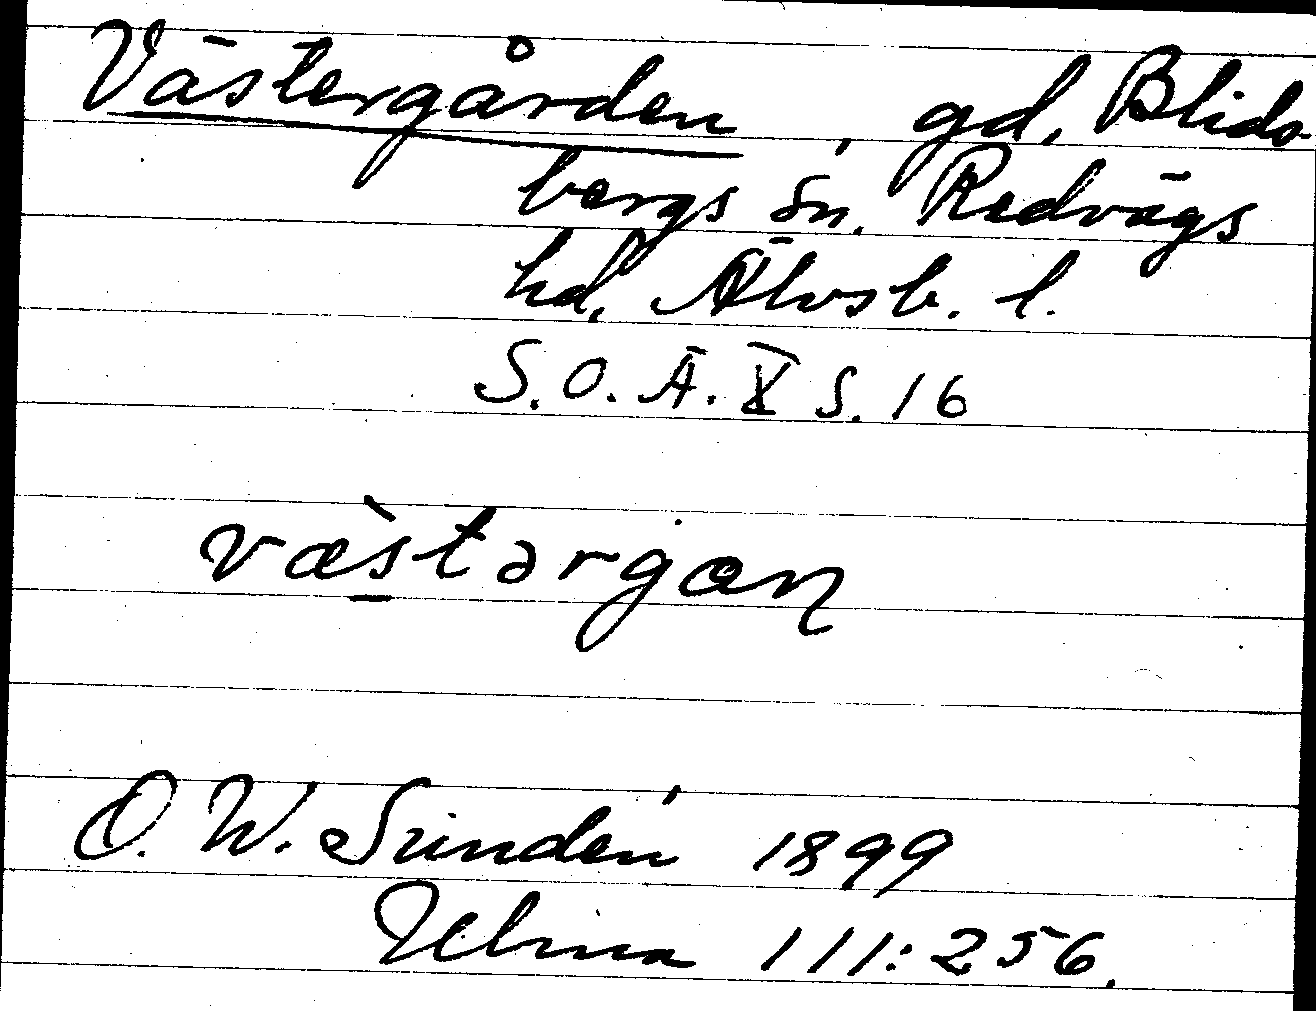 Västergården, gd, Blids-
bergs sn. Redvägs
hd, Älvsb. l.
S.O.Ä. X S. 16
væ̀stərgan
O. W. Sundén 1899
Ulma 111:256.